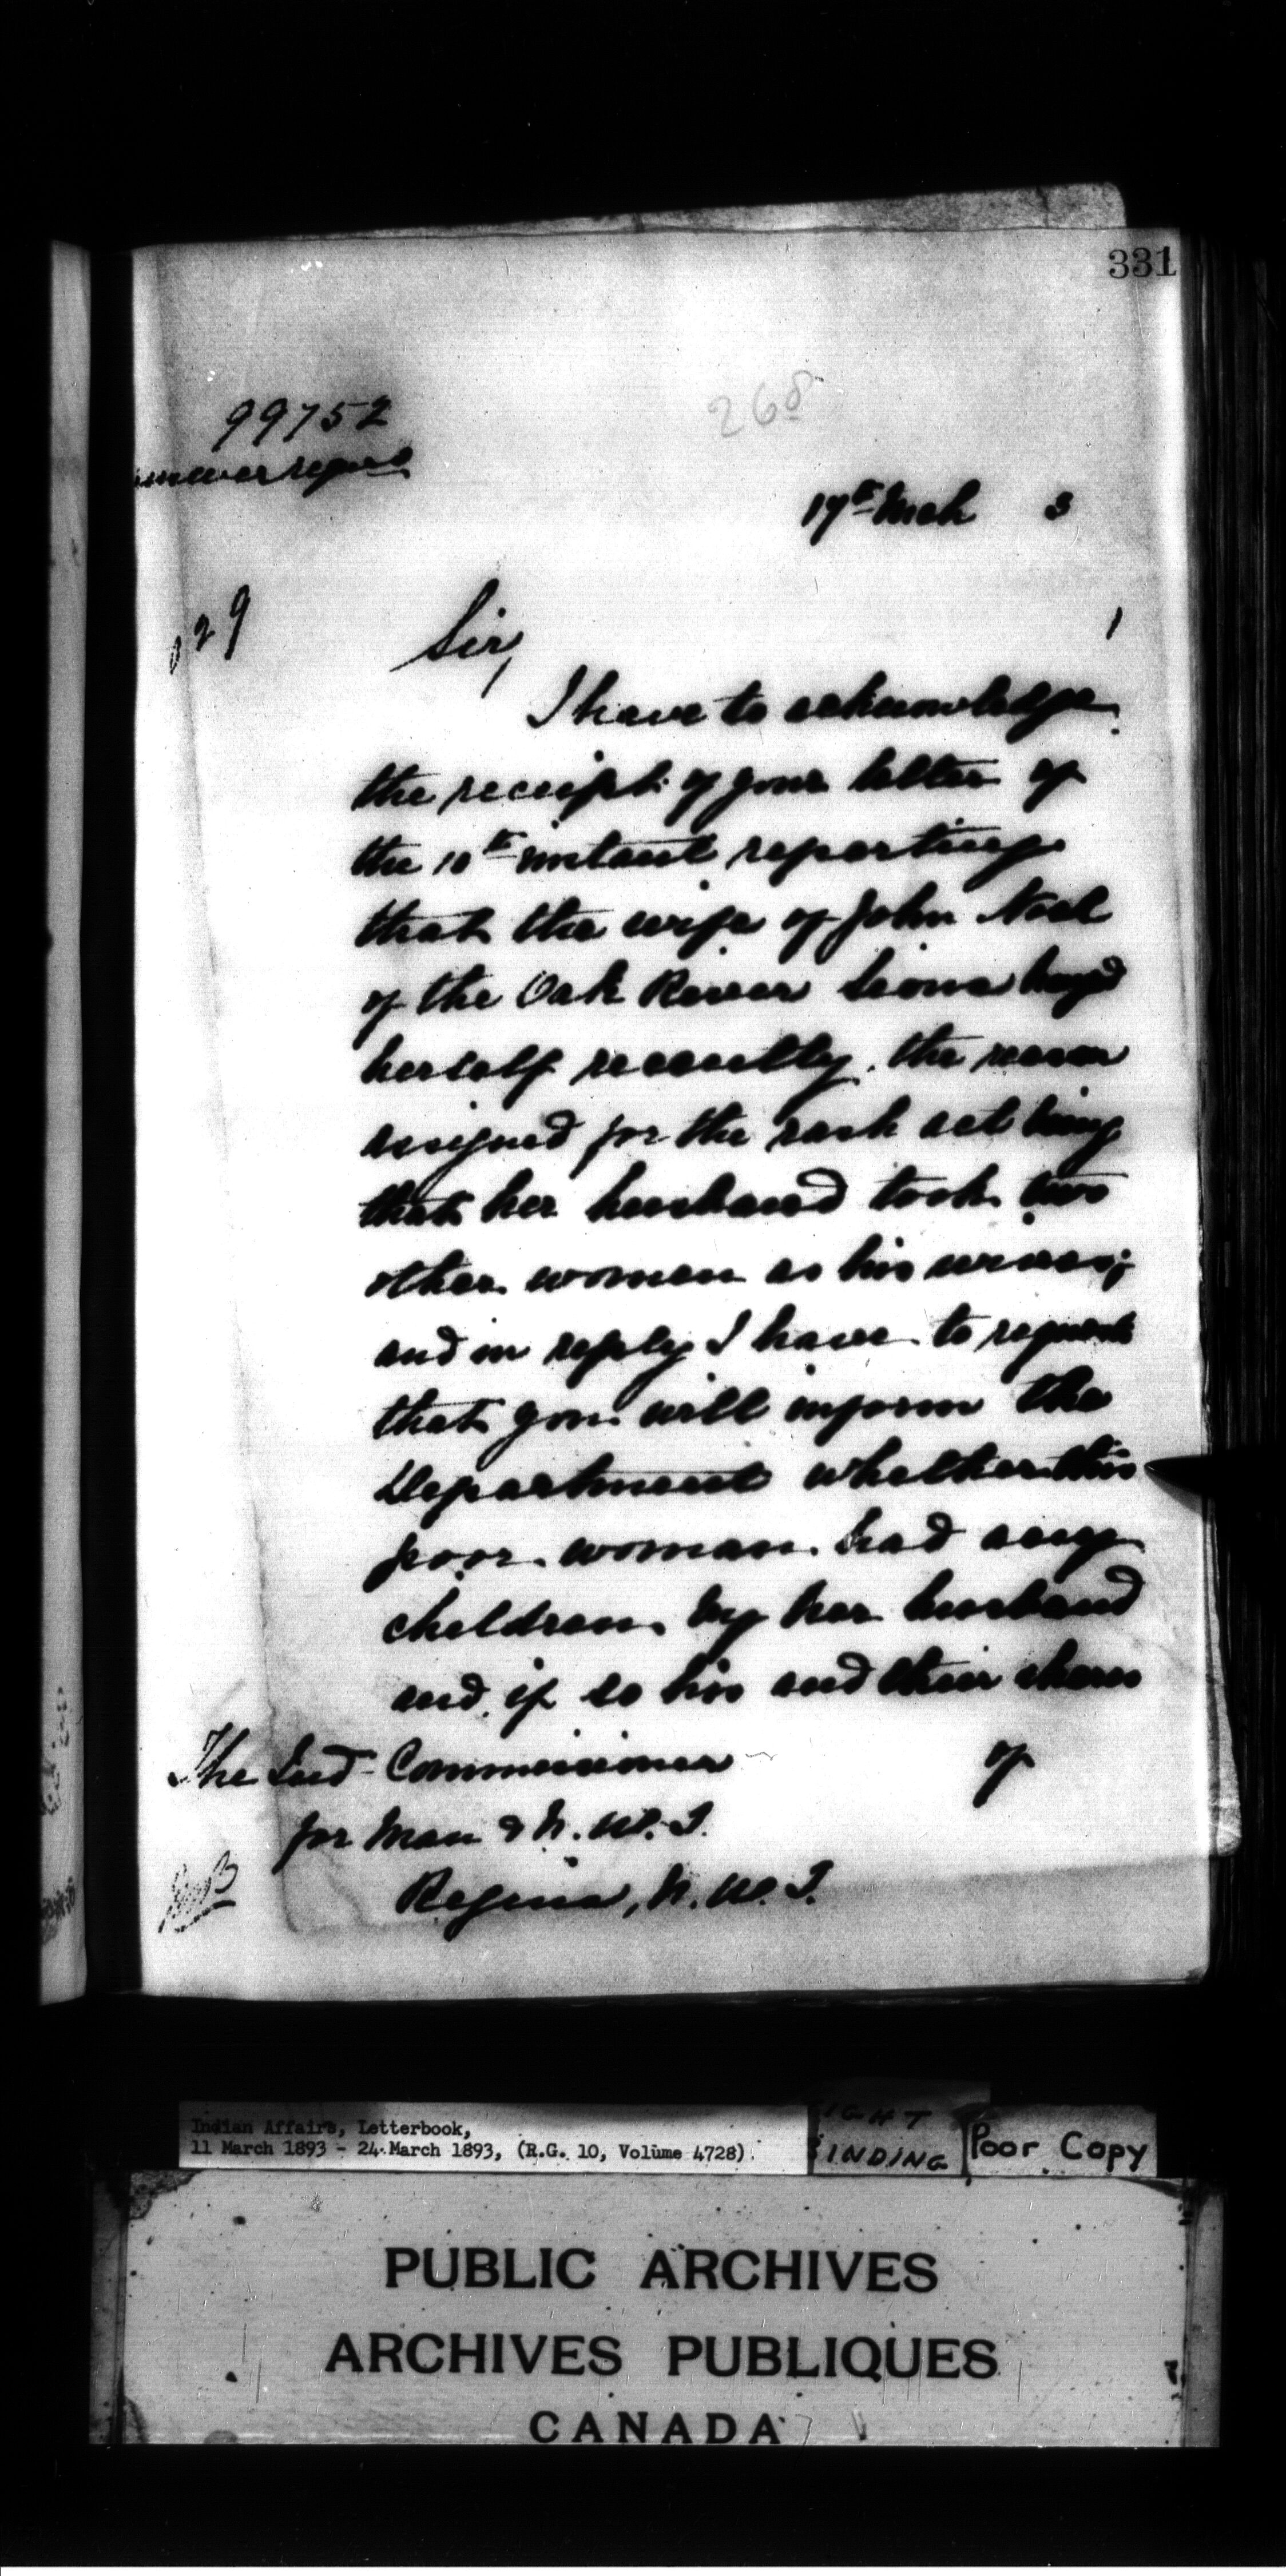 331
268
99752
17th Mch 3
129
Sir,
I have to acknowledge
the receipt of your letter of
the 10th instant reporting
that the wife of John Noel
of the Oak River Sioux hang'd
herself recently, the reason
assigned for the rash act being
that her husband took two
other women as his wives;
and in reply I have to request
that you will inform the
Department whether this
poor woman had any
children by her husband
and if so his and their share
of
The Ind Commissioner
for Man & N.W.T.
Regina, N.W.T.
Indian Affairs, Letterbook,
11 March 1893 - 24 March 1893, (R.G. 10, Volume 4728).
BINDING
Poor Copy
PUBLIC ARCHIVES
ARCHIVES PUBLIQUES
CANADA